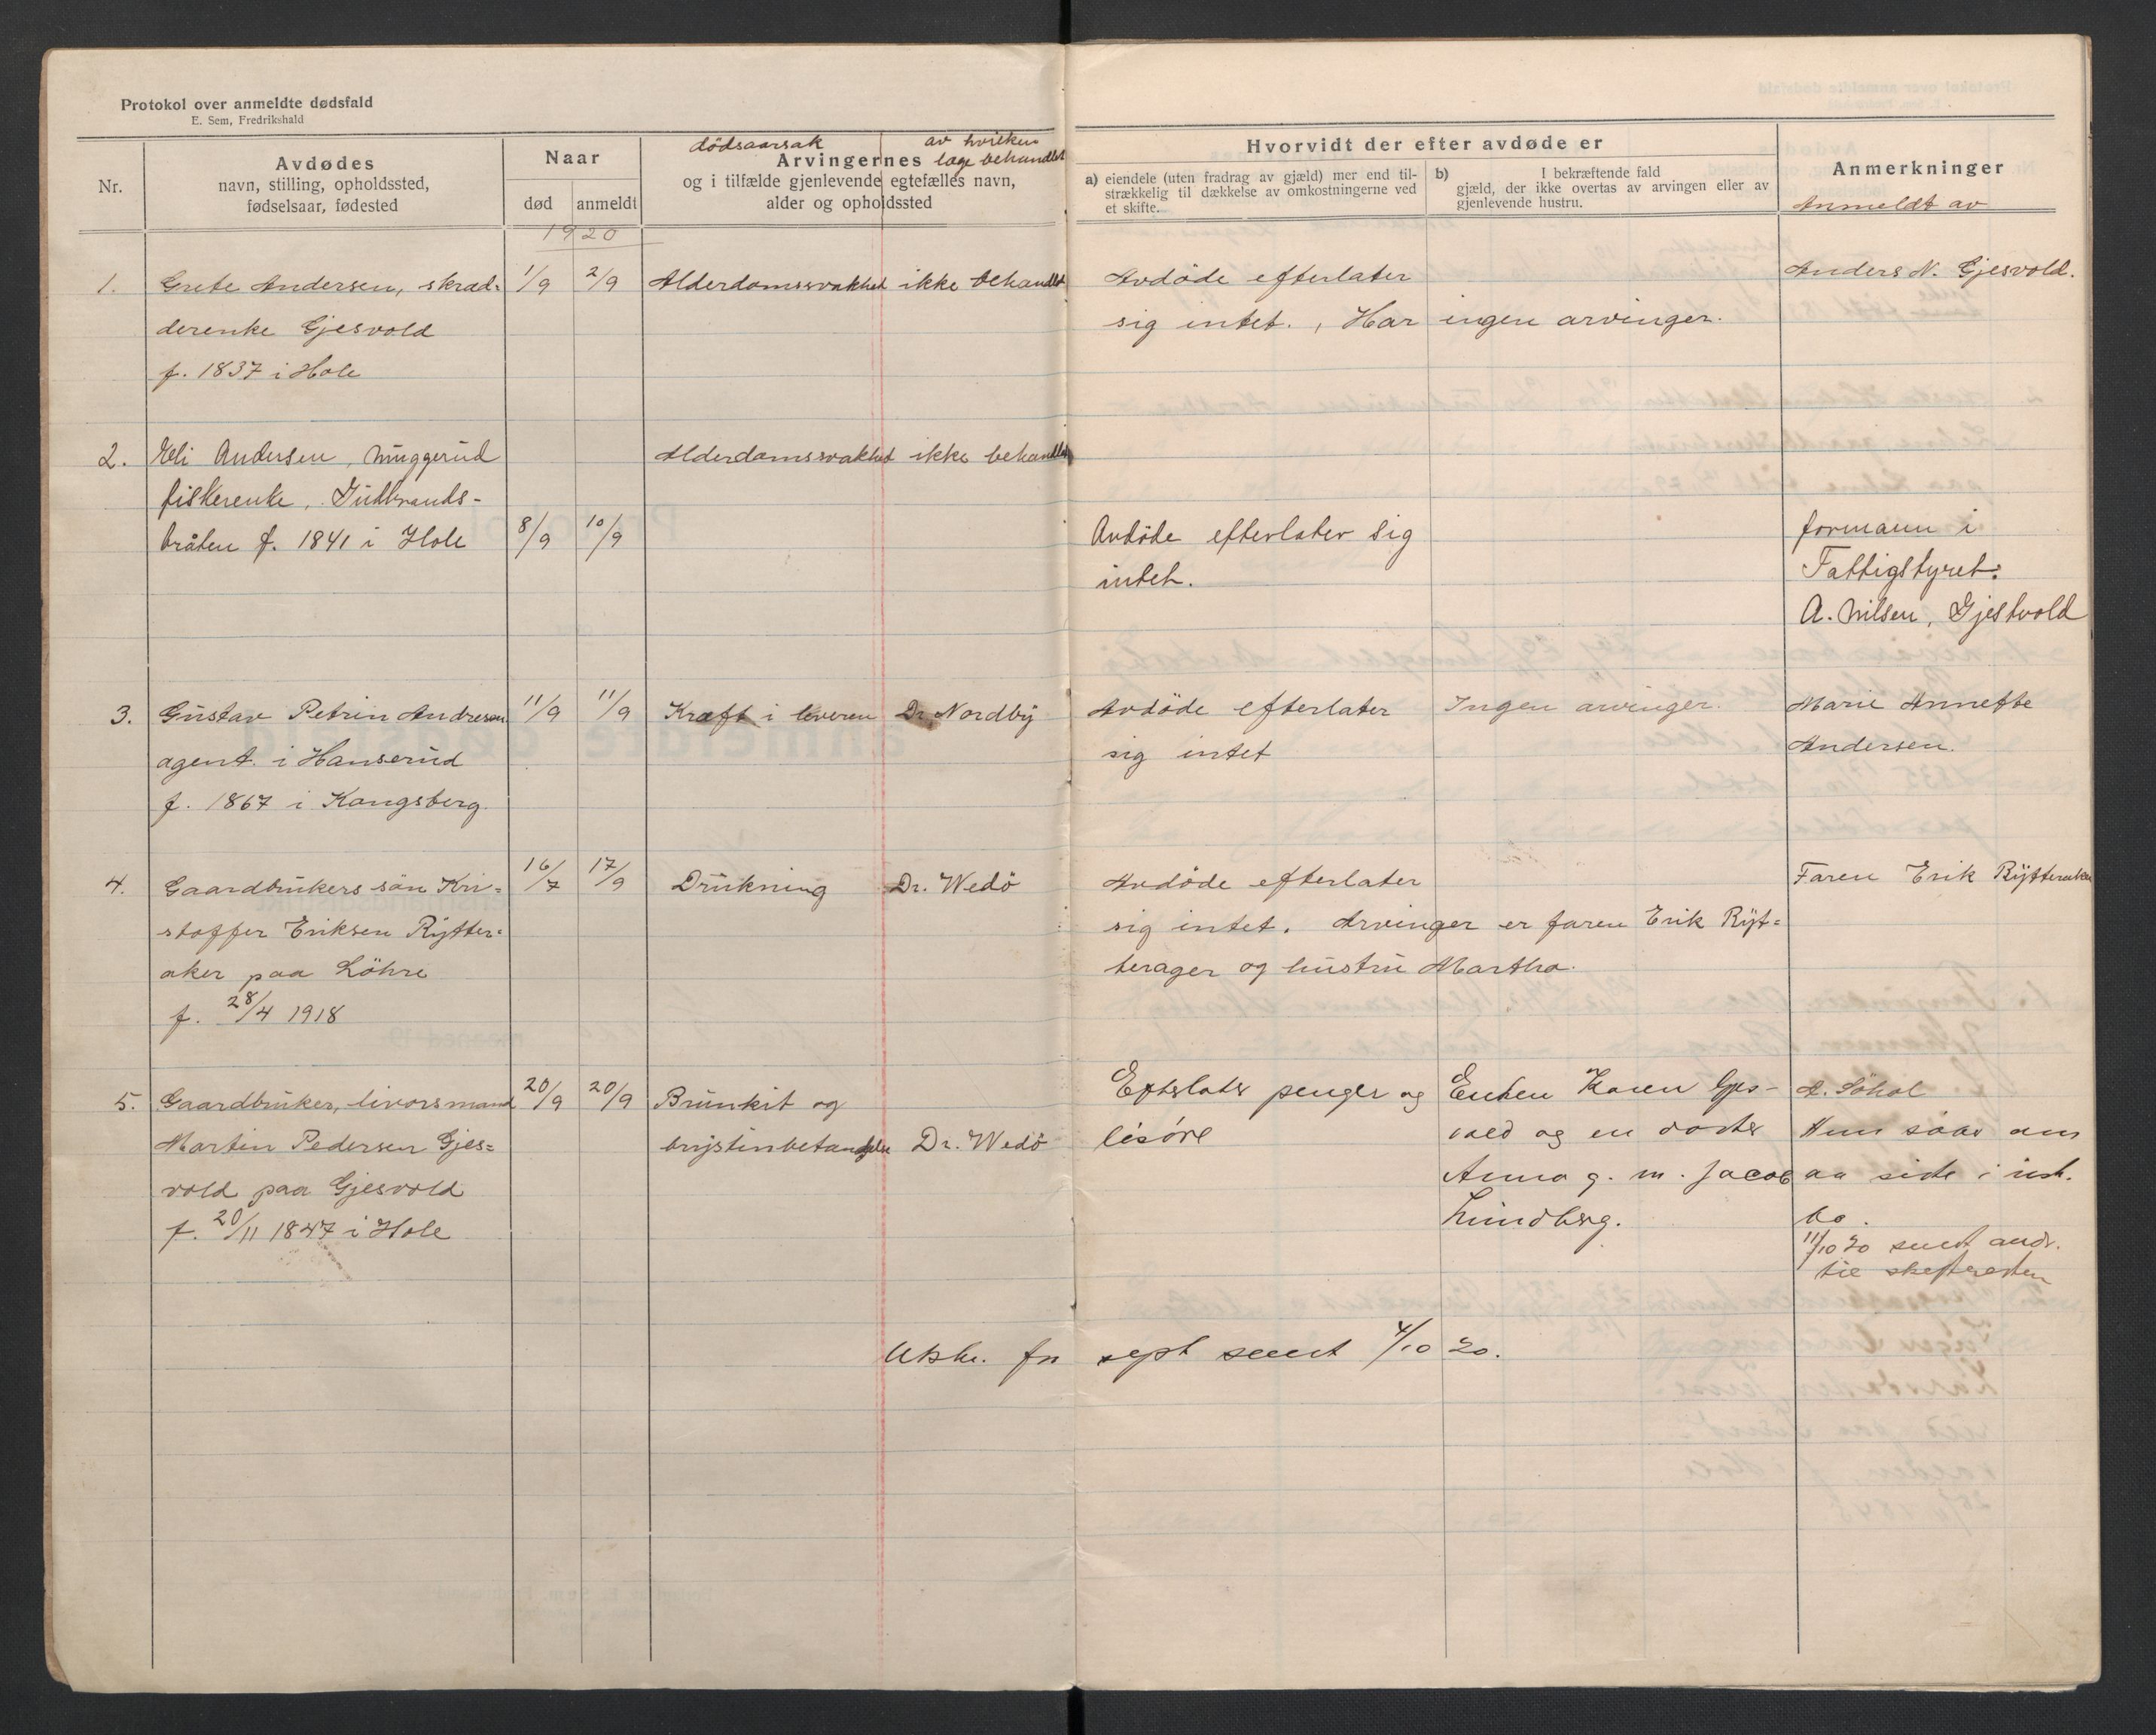 Protokol over anmeldte dødsfald
E. Sem, Fredrikshald
Nr.
Avdødes
navn, stilling, opholdssted,
fødselsaar, fødested
Naar
død
anmeldt
dödsaarsak
av hvilken
læge behandlet
Arvingernes
og i tilfælde gjenlevende egtefælles navn,
alder og opholdssted
Hvorvidt der efter avdøde er
a) eiendele (uten fradrag av gjæld) mer end til-
strækkelig til dækkelse av omkostningerne ved
et skifte.
b) I bekræftende fald
gjæld, der ikke overtas av arvingen eller av
gjenlevende hustru.
Anmerkninger
Anmeldt av
1920
1. Grete Andersen, skræd- 1/9 2/9 Alderdomssvakhet ikke behandlet Avdöde efterlater Anders N. Gjesvold.
derenke Gjesvold sig intet., Har ingen arvinger.
f. 1837 i Hole
2. Eli Andersen, Muggerud Alderdomssvakhet ikke behandlet
fiskerenke, Gudbrands-
bråten f. 1841 i Hole 8/9 10/9 Avdöde efterlater sig formann i
intet. Fattigstyret:
A. Nilsen, Gjestvold
3. Gustav Petrin Andresen 11/9 11/9 Kræft i leveren Dr. Nordby Avdöde efterlater Ingen arvinger. Marie Annette
agent i Hanserud sig intet Andersen.
f. 1867 i Kongsberg
4. Gaardbrukers sön Kri= 16/7 17/9 Drukning Dr. Wedö Avdöde efterlater Faren Erik Rytteraker
stoffer Eriksen Rytter= sig intet. Arvinger er faren Erik Ryt=
aker paa Löhre terager og hustru Martha.
f. 28/4 1918
5. Gaardbruker, livorsmand 20/9 20/9 Brunkit og Efterlater penger og Enken Karen Gjes- A. Söhol
Martin Pedersen Gjes= brystinbetændelse Dr. Wedö lösöre vold og en datter
vold paa Gjesvold Anna g. m. Jacob aa side i
f. 20/11 1847 i Hole Lundberg. bo.
11/10 20 sendt
til skifteretten
Utskr. for sept sendt 4/10 20.